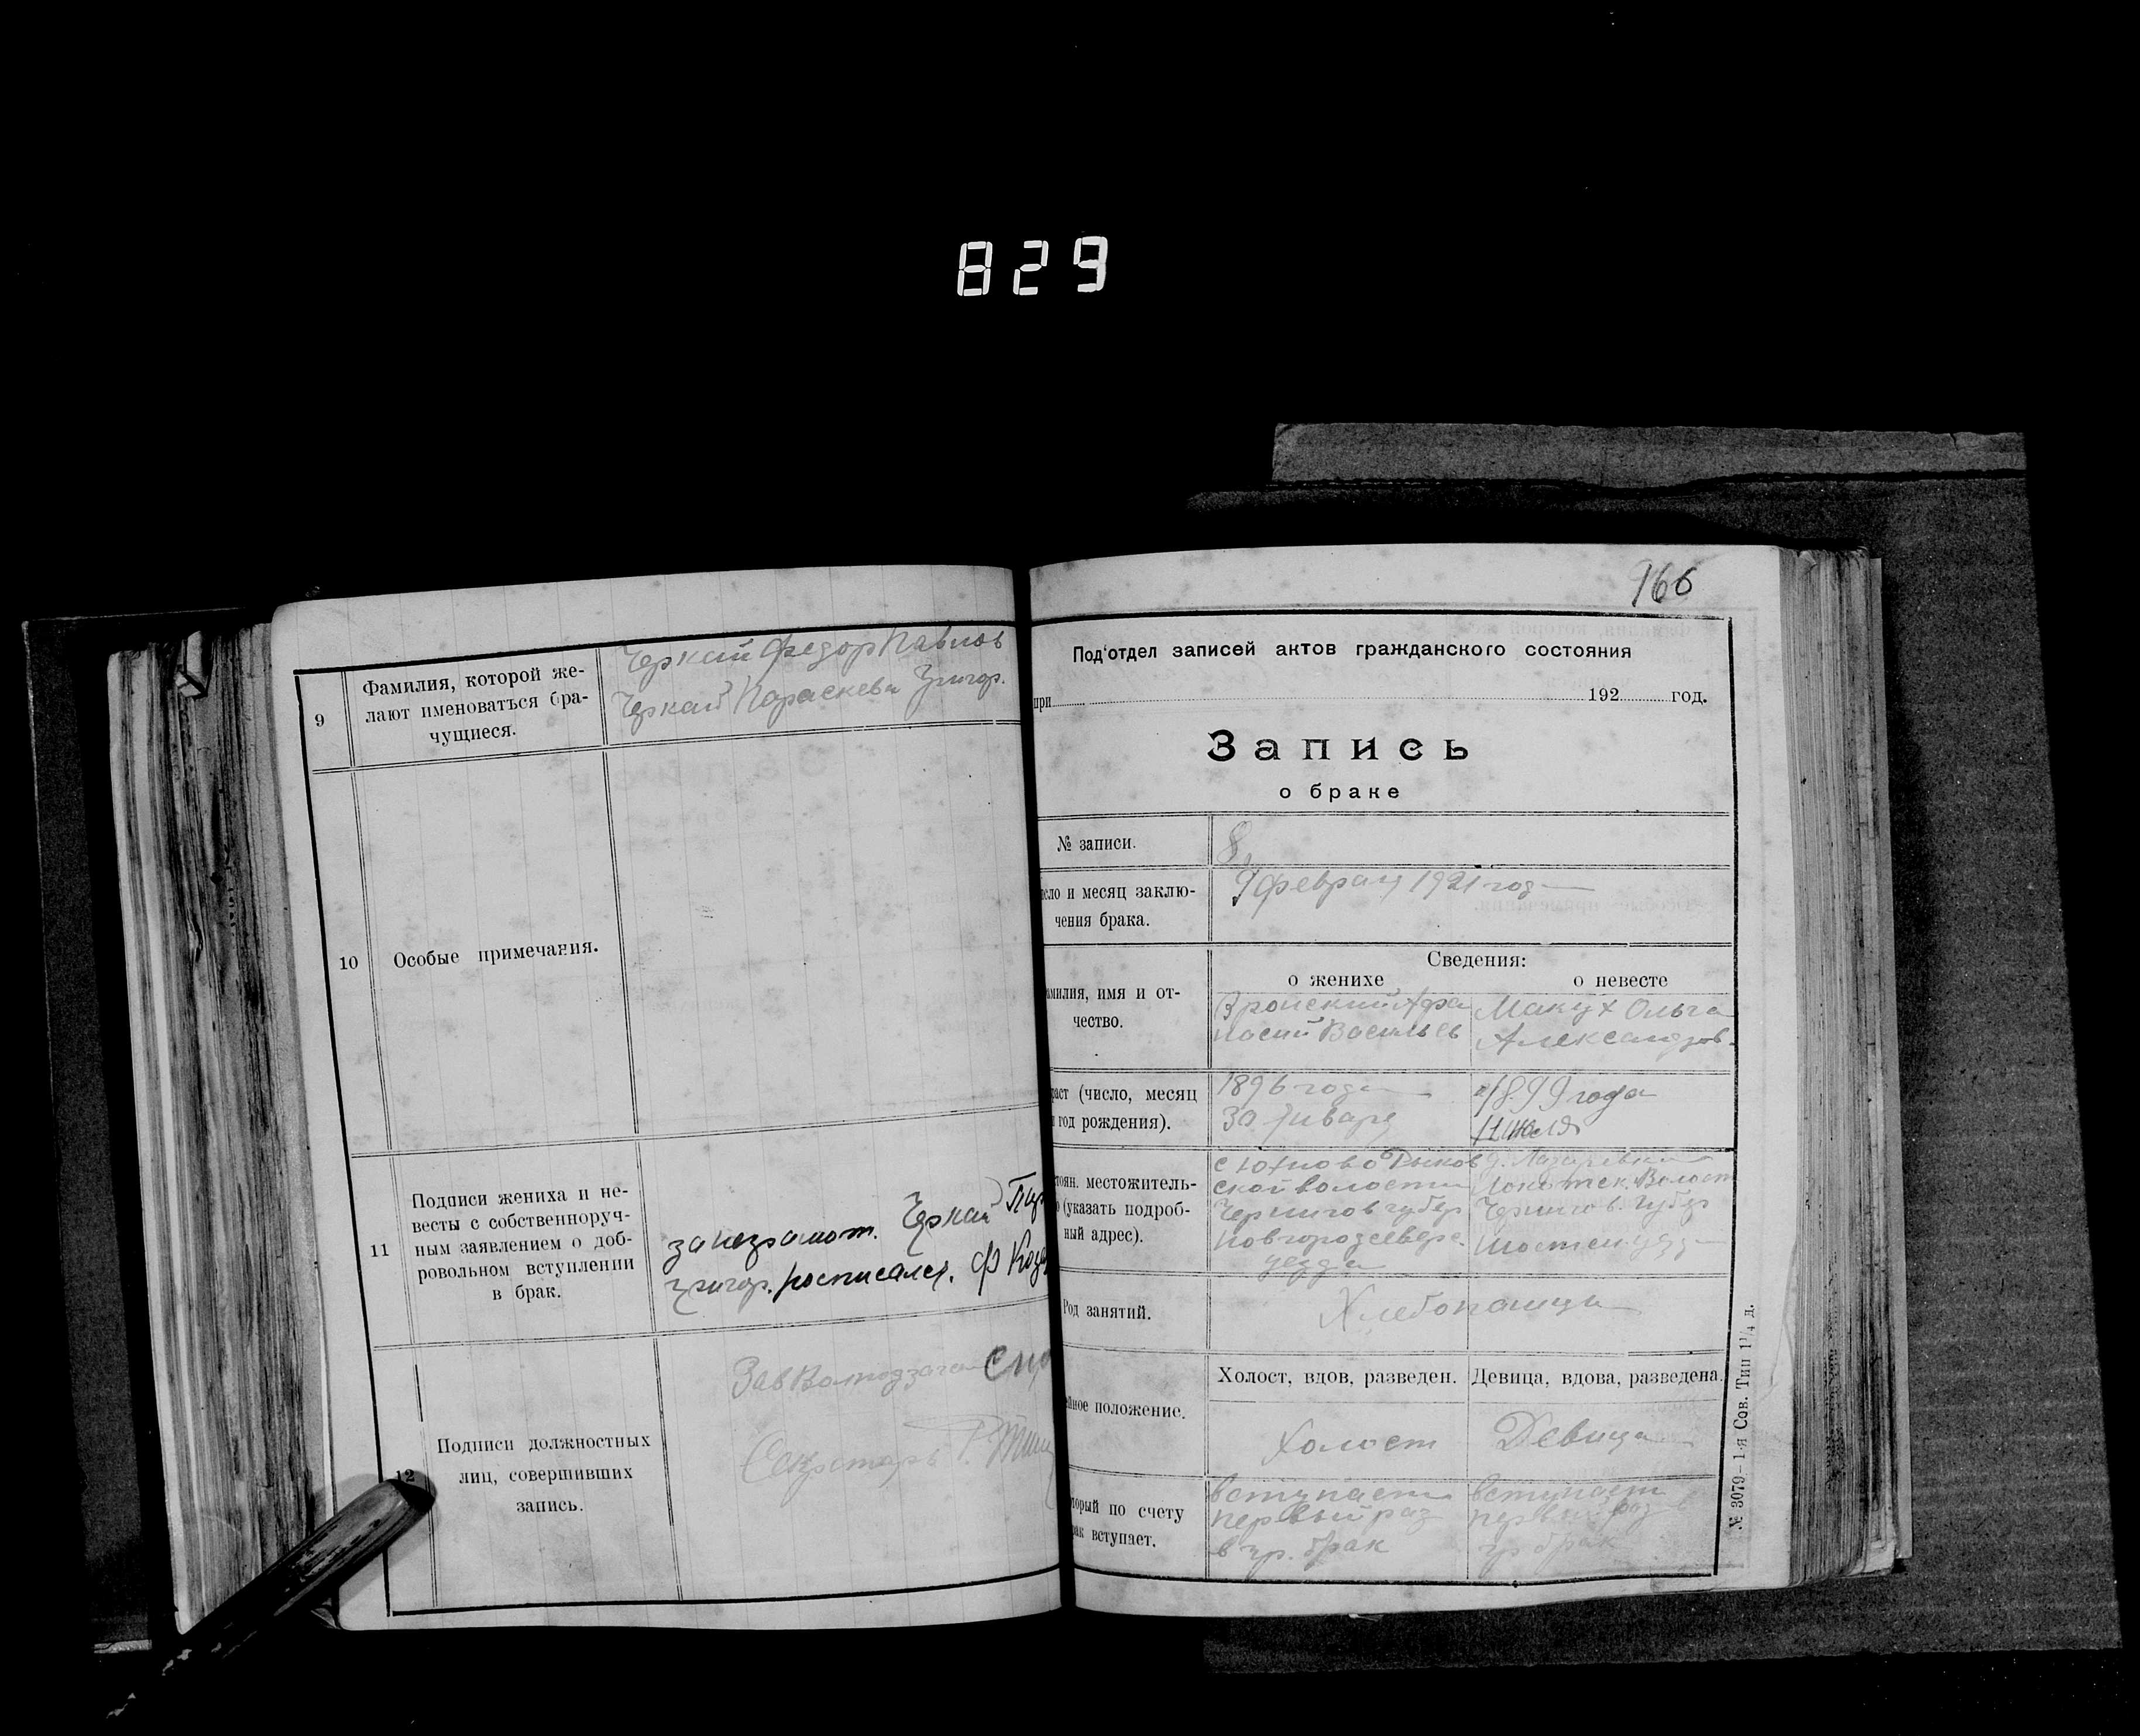 829
9
Фамилия, которой же-
лают именоваться бра-
чущиеся.
Черкай Федор Павлов
Черкай Параскева Григор.
10
Особые примечания.
11
Подписи жениха и не-
весты с собственноруч-
ным заявлением о доб-
ровольном вступлении
в брак.
за неграмот. Черкай Пар
Григор. росписался. Ф Коз
12
Подписи должностных
лиц, совершивших
запись.
Зав
Секретарь
966
Под'отдел записей актов гражданского состояния
при 192 год.
Запись
о браке
№ записи.
8.
сло и месяц заклю-
чения брака.
9 февраля 1921 года
Сведения:
о женихе
о невесте
амилия, имя и от-
чество.
Афа
насий Васильев
Макух Ольга
Александров.
раст (число, месяц
и год рождения).
1896 года
30 Января
1899 года
11 Июля
тоян. местожитель-
о (указать подроб-
ный адрес).
с Юхново
ской волости
Чернигов губер
Новгородсевере.
уезда
д. Лазаревка
Волост
Чернигов. губер
Шостен. уезд
Род занятий.
Хлебопашцы
йное положение.
Холост, вдов, разведен.
Девица, вдова, разведена.
Холост
Девица
торый по счету
рак вступает.
вступает
первый раз
в гр. брак
вступает
первый раз в
гр брак
№ 3079–1-я Сов. Тип 1¼ д.